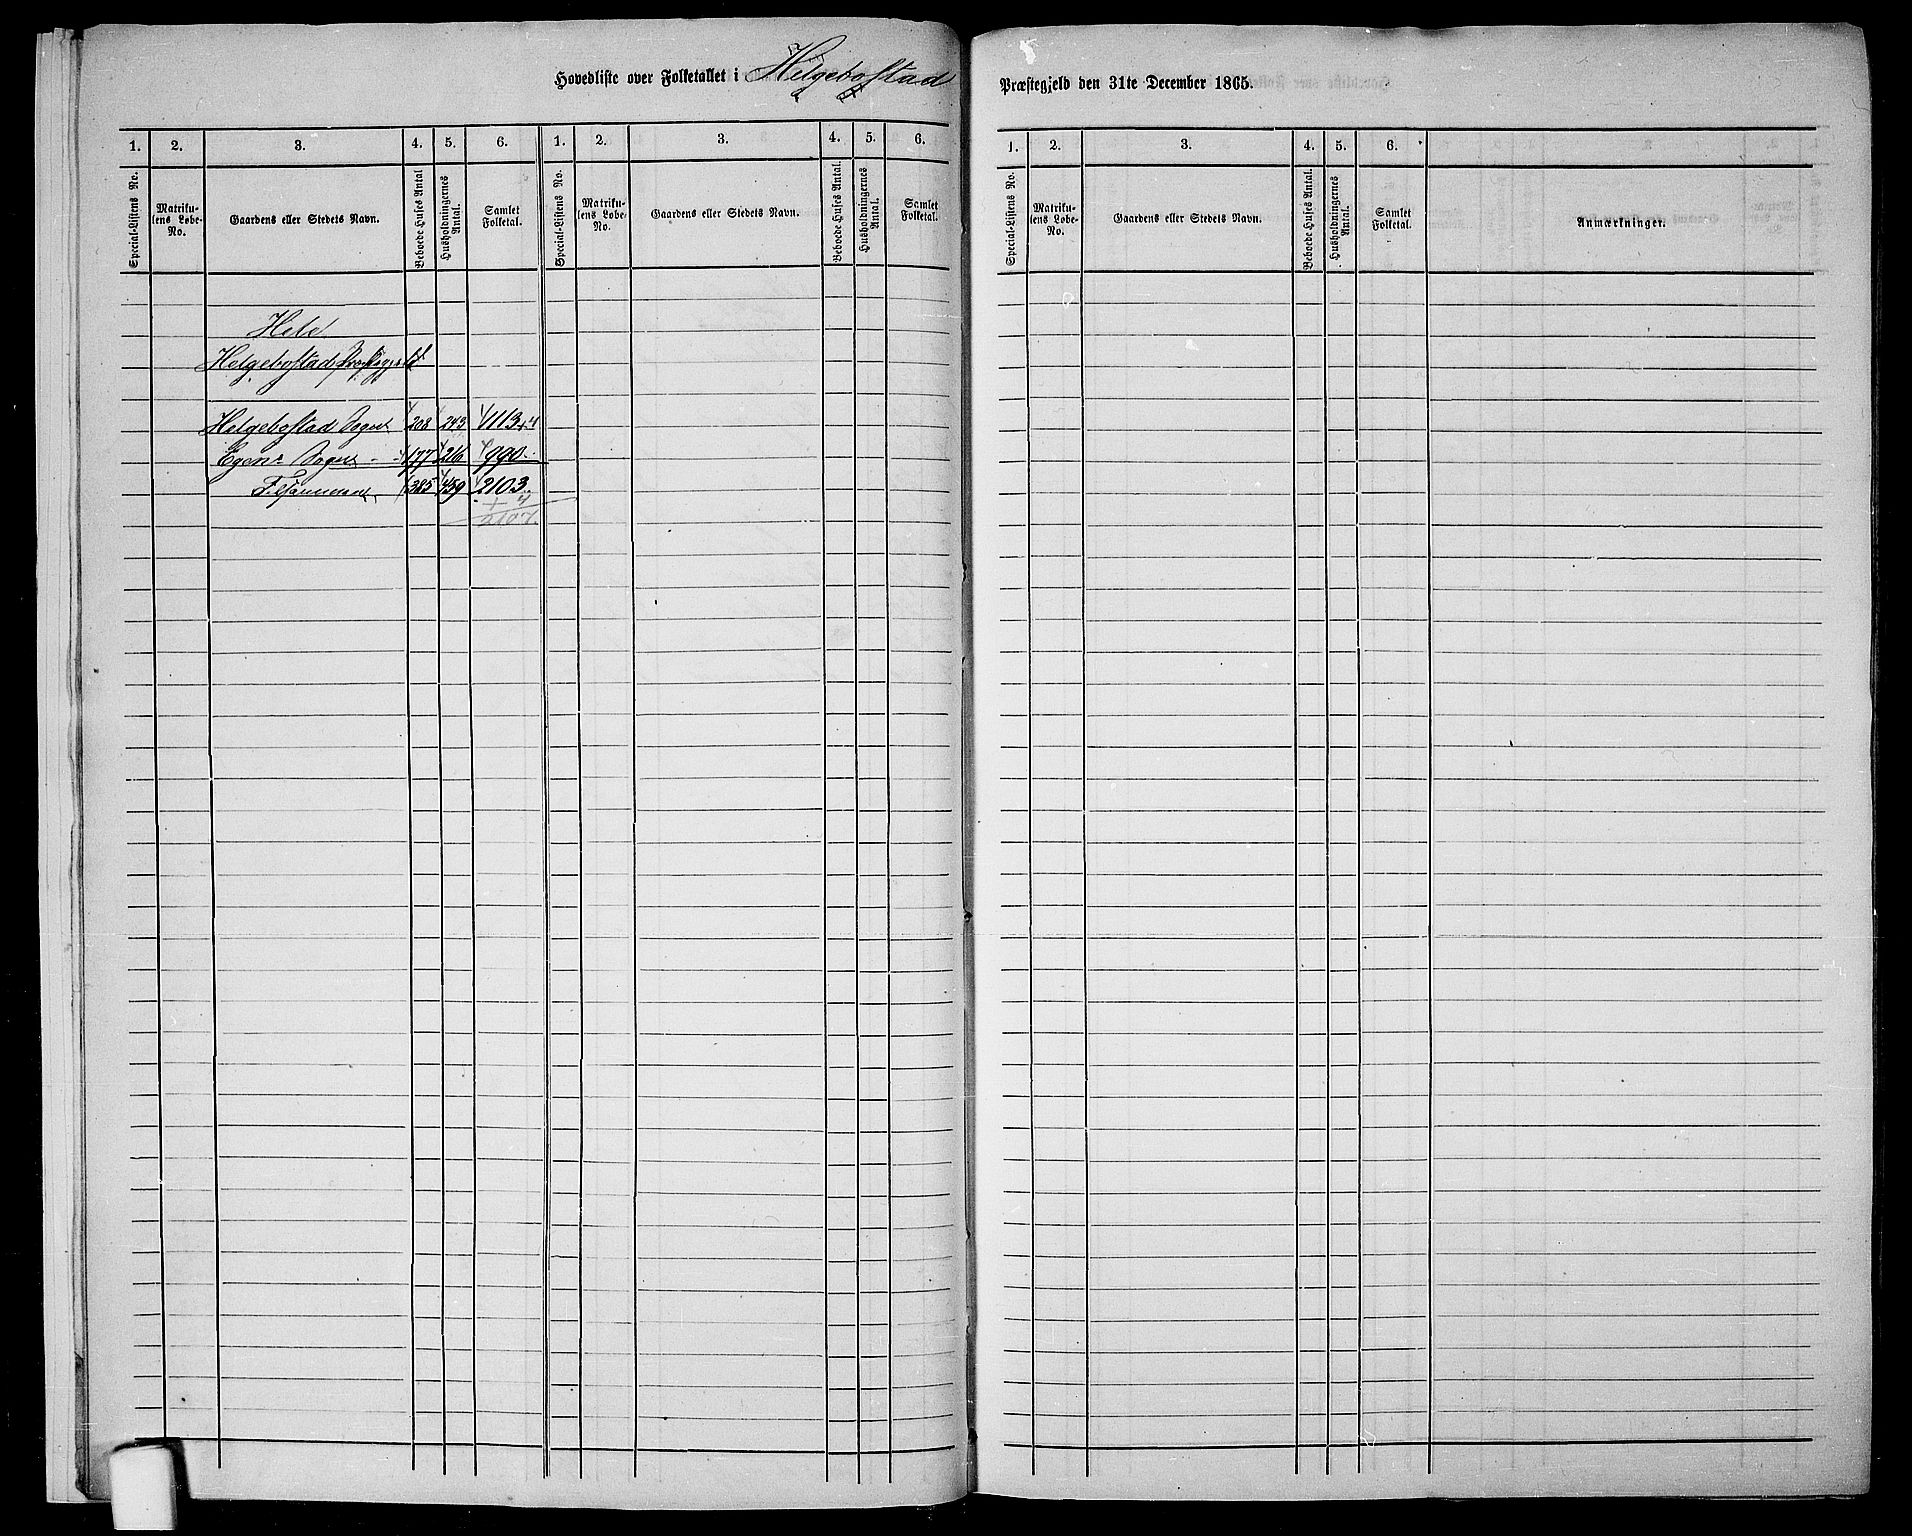 Hovedliste over Folketallet i Helgebostad Præstegjeld den 31te December 1865.
1. 2. 3. 4. 5. 6. 1. 2. 3. 4. 5. 6. 1. 2. 3. 4. 5. 6.
Special-Listens No. Matriku-lens Løbe-No. Gaardens eller Stedets Navn. Beboede Huses Antal Husholdningernes Antal. Samlet Folketal. Special-Listens No. Matriku-lens Løbe-No. Gaardens eller Stedets Navn. Beboede Huses Antal. Husholdningernes Antal. Samlet Folketal. Special-Listens No. Matriku-lens Løbe-No. Gaardens eller Stedets Navn. Beboede Huses Antal. Husholdningernes Antal. Samlet Folketal. Anmærkninger.
Hele
Helgebostad Præstegjeld
Helgebostad Sogn 208 243 1113+4
Egens Sogn 177 216 990
Tilsammen 385 459 2103
+ 4
2107